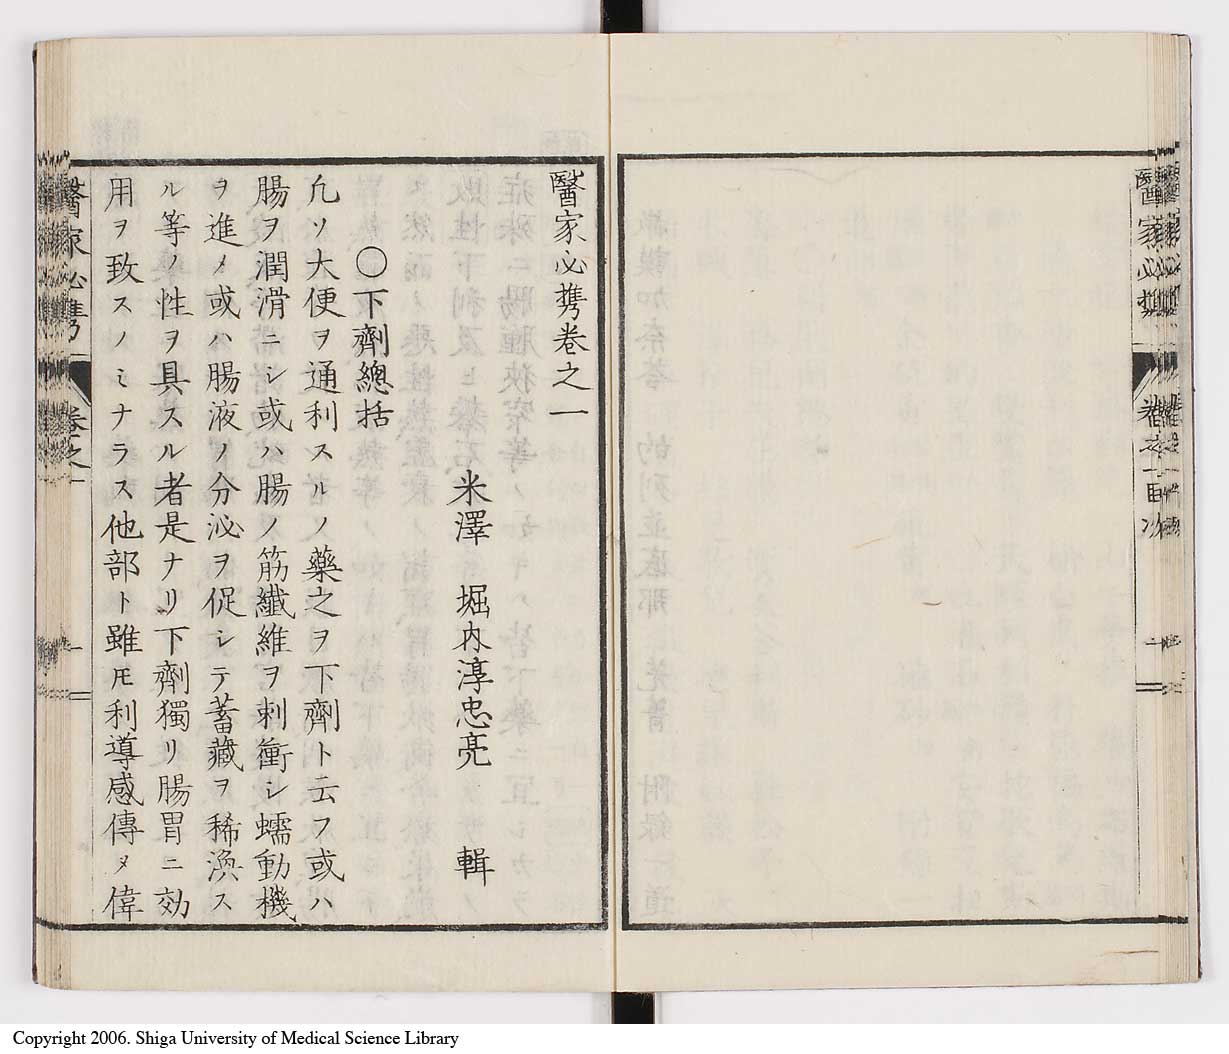 醫家必攜
卷之一目次
二
醫家必攜卷之一
米澤 堀内淳忠亮 輯
〇下劑總括
凢ソ大便ヲ通利スルノ藥之ヲ下劑ト云フ或ハ
腸ヲ潤滑ニシ或ハ腸ノ筋纖維ヲ刺衝シ蠕動機
ヲ進メ或ハ腸液ノ分泌ヲ促シテ蓄藏ヲ稀渙ス
ル等ノ性ヲ具スル者是ナリ下劑獨リ腸胃ニ効
用ヲ致スノミナラス他部ト雖𪜈利導感傳ノ偉
醫家必攜
卷之一
一
Copyright 2006. Shiga University of Medical Science Library